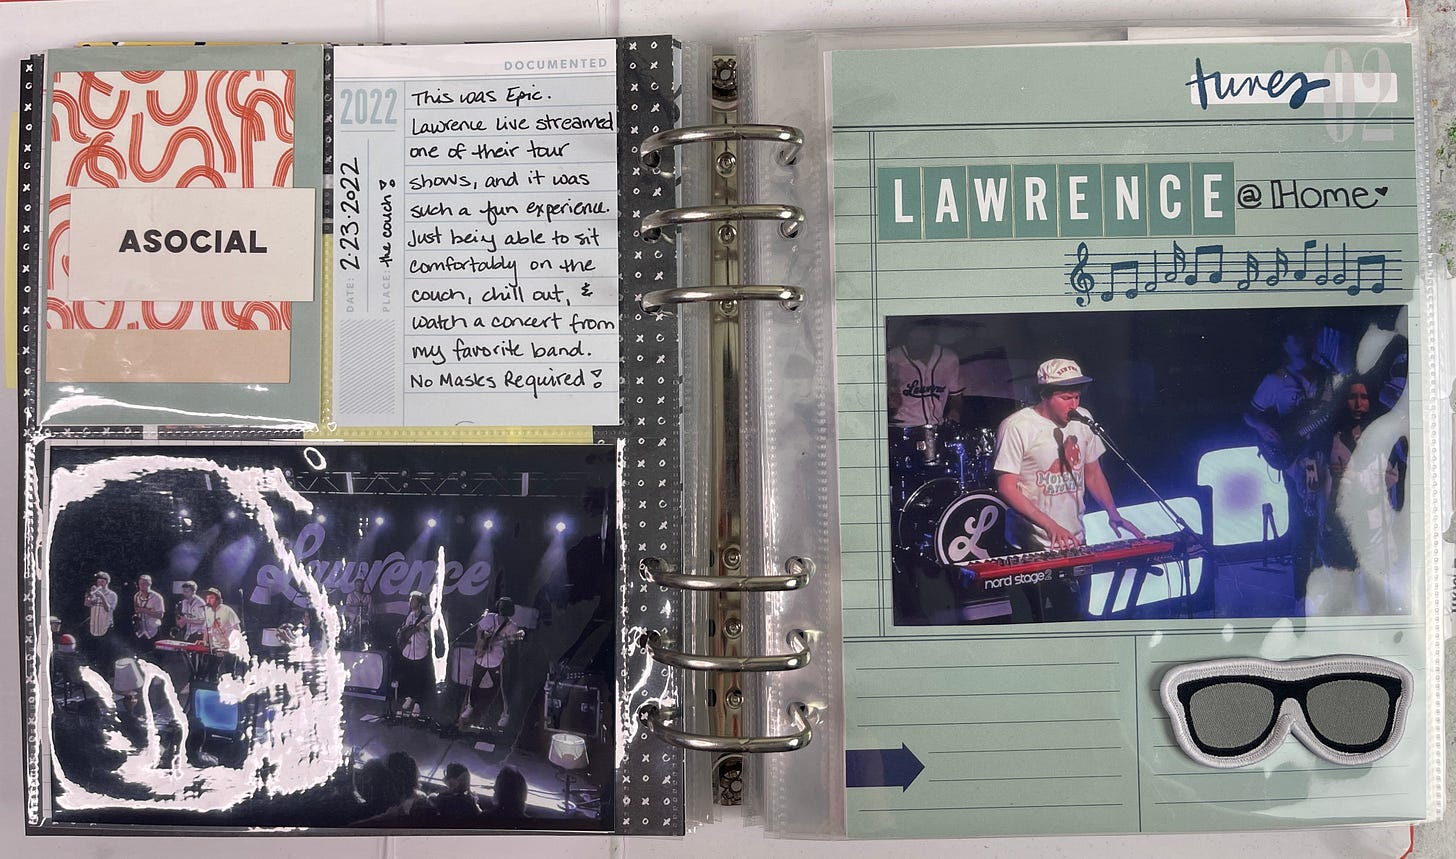 ASOCIAL
DOCUMENTED
2022
DATE: 2.23.2022
PLACE: the couch
This was Epic.
Lawrence live streamed
one of their tour
shows, and it was
such a fun experience.
Just being able to sit
comfortably on the
couch, chill out, &
watch a concert from
my favorite band.
No Masks Required!
Lawrence
tunes
02
LAWRENCE @ Home
Lawrence
L
nord stage 2